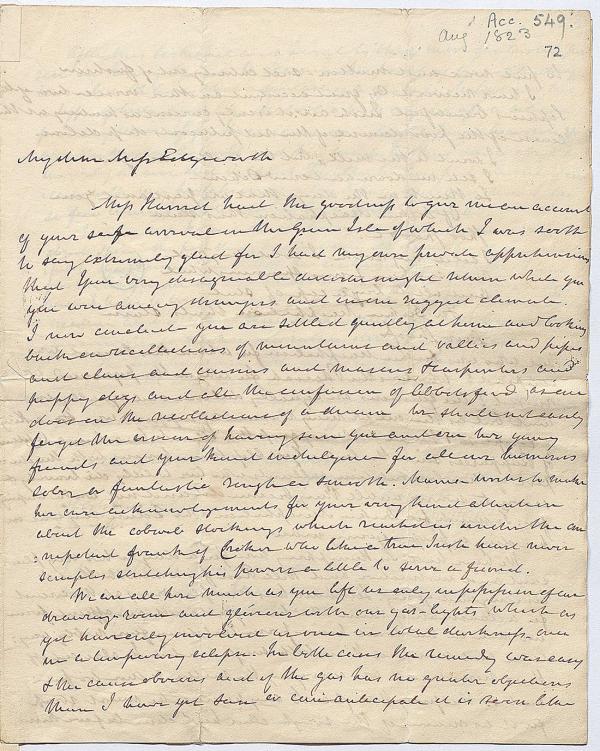 Acc. 549.
Aug 1823
72
My dear Miss Edgeworth
Miss Harriet had the goodness to give me an account
of your safe arrival in the Green Isle of which I was sooth
to say extremely glad for I had my own private apprehensions
that your very disagreeable disorder might return while you
you were among strangers and in our rugged climate.
I now conclude you are settled quietly at home and looking
back on recollections of mountains and vallies and pipes
and clans and cousins and masons & carpenters and
puppy dogs and all the confusion of Abbotsford as one
does on the recollections of a dream. We shall not easily
forget the vision of having seen you and our two young
friends and your kind indulgence for all our humours
sober or fantastic rough or smooth. Mamma writes to make
her own acknowledgements for your very kind attention
about the cobweb stockings which reached us under the om
-nipotent frank of Croker who like a true Irish heart never
scruples stretching his powers a little to serve a friend.
We are all here much as you left us only in possession of our
drawing-room and glorious with our gas-lights which as
yet have only involved us once in total darkness - once
in a temporary eclipse. In both cases the remedy was easy
& the cause obvious and if the gas has no greater objections
than I have yet seen or can anticipate it is soon like